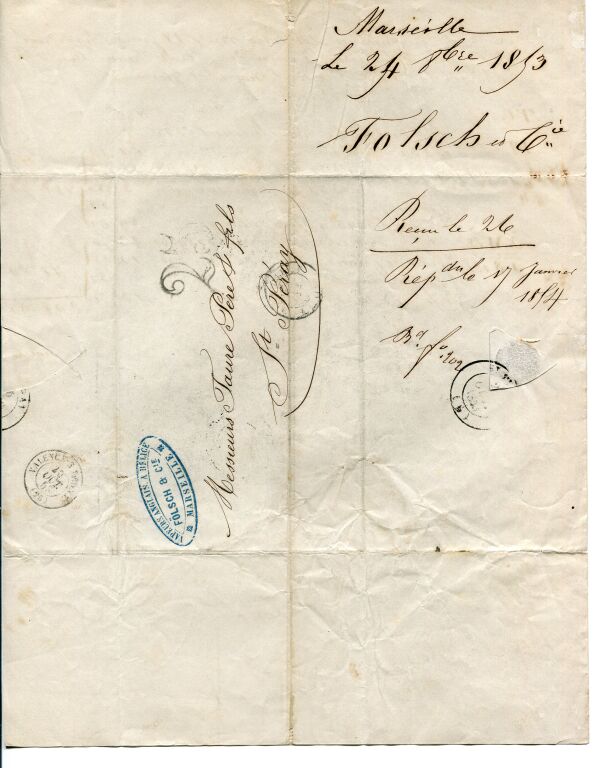 Marseille
Le 24 8bre 1853
Folsch & Cie
Reçu le 26
Rép du le 17 Janvier
1854
fo. 202
Messieurs Faure Père & fils
St. Péray
25
VAPEURS ANGLAIS A HELICE
FOLSCH & CIE
MARSEILLE
VALENCE